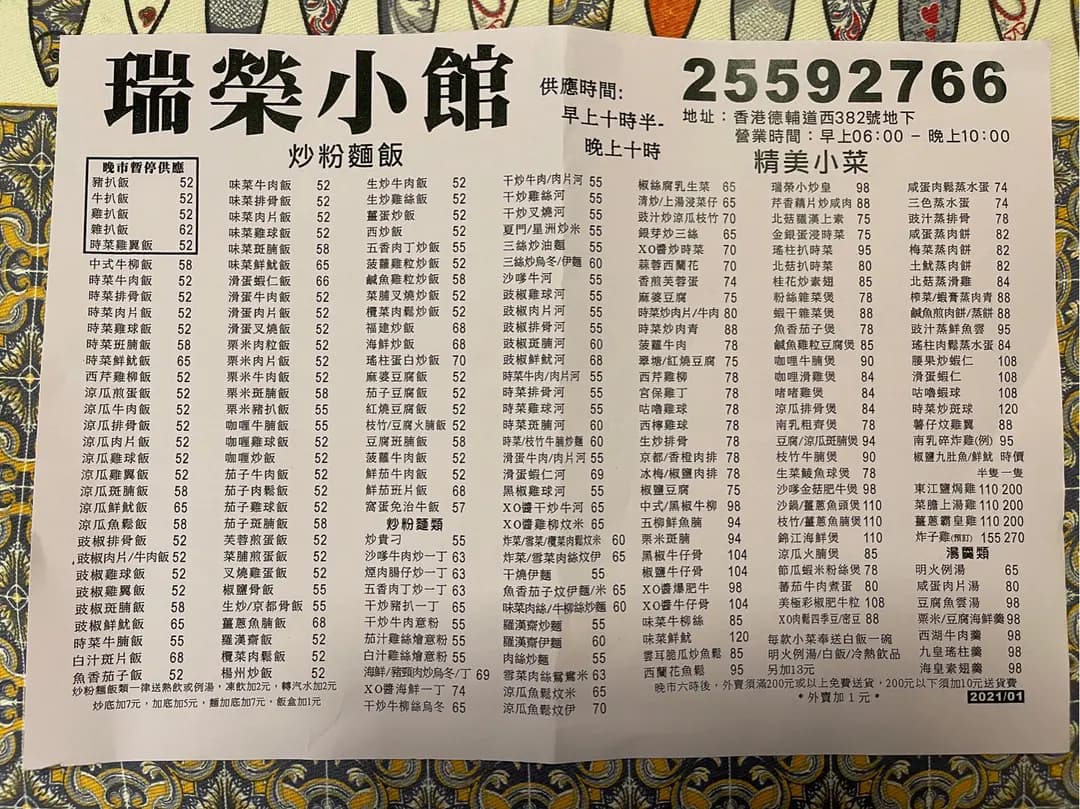 瑞榮小館
供應時間:
早上十時半-
晚上十時
25592766
地址：香港德輔道西382號地下
營業時間：早上06:00 - 晚上10:00
炒粉麵飯
精美小菜
晚市暫停供應
豬扒飯 52
牛扒飯 52
雞扒飯 52
雜扒飯 62
時菜雞翼飯 52
中式牛柳飯 58
時菜牛肉飯 52
時菜排骨飯 52
時菜肉片飯 52
時菜雞球飯 52
時菜班腩飯 58
時菜鮮魷飯 65
西芹雞柳飯 52
涼瓜煎蛋飯 52
涼瓜牛肉飯 52
涼瓜排骨飯 52
涼瓜肉片飯 52
涼瓜雞球飯 52
涼瓜雞翼飯 52
涼瓜斑腩飯 58
涼瓜鮮魷飯 65
涼瓜魚鬆飯 58
豉椒排骨飯 52
豉椒肉片/牛肉飯 52
豉椒雞球飯 52
豉椒雞翼飯 52
豉椒斑腩飯 58
豉椒鮮魷飯 65
時菜牛腩飯 55
白汁斑片飯 68
魚香茄子飯 52
味菜牛肉飯 52
味菜排骨飯 52
味菜肉片飯 52
味菜雞球飯 52
味菜斑腩飯 58
味菜鮮魷飯 65
滑蛋蝦仁飯 66
滑蛋牛肉飯 52
滑蛋肉片飯 52
滑蛋叉燒飯 52
粟米肉粒飯 52
粟米肉片飯 52
粟米牛肉飯 52
粟米斑腩飯 58
粟米豬扒飯 55
咖喱牛腩飯 55
咖喱雞球飯 52
咖喱炒飯 52
茄子牛肉飯 52
茄子肉鬆飯 52
茄子雞球飯 52
茄子斑腩飯 58
芙蓉煎蛋飯 52
菜脯煎蛋飯 52
叉燒雞蛋飯 52
椒鹽骨飯 55
生炒/京都骨飯 55
薑蔥魚腩飯 68
羅漢齋飯 52
欖菜肉鬆飯 52
楊州炒飯 52
生炒牛肉飯 52
生炒雞絲飯 52
薑蛋炒飯 52
西炒飯 52
五香肉丁炒飯 55
菠蘿雞粒炒飯 52
鹹魚雞粒炒飯 58
菜脯叉燒炒飯 52
欖菜肉鬆炒飯 52
福建炒飯 68
海鮮炒飯 68
瑤柱蛋白炒飯 70
麻婆豆腐飯 52
茄子豆腐飯 52
紅燒豆腐飯 52
枝竹/豆腐火腩飯 52
豆腐班腩飯 58
菠蘿牛肉飯 52
鮮茄牛肉飯 52
鮮茄班片飯 68
窩蛋免治牛飯 57
炒粉麵類
炒貴刁 55
沙嗲牛肉炒一丁 63
煙肉腸仔炒一丁 63
五香肉丁炒一丁 63
干炒豬扒一丁 65
干炒牛肉意粉 55
茄汁雞絲燴意粉 55
白汁雞絲燴意粉 55
海鮮/豬頸肉炒烏冬/丁 69
XO醬海鮮一丁 74
干炒牛柳絲烏冬 65
干炒牛肉/肉片河 55
干炒雞絲河 55
干炒叉燒河 55
夏門/星洲炒米 55
三絲炒油麵 55
三絲炒烏冬/伊麵 60
沙嗲牛河 55
豉椒雞球河 55
豉椒肉片河 55
豉椒排骨河 55
豉椒斑腩河 60
豉椒鮮魷河 68
時菜牛肉/肉片河 55
時菜排骨河 55
時菜雞球河 55
時菜斑腩河 60
時菜/枝竹牛腩炒麵 60
滑蛋牛肉/肉片河 55
滑蛋蝦仁河 69
黑椒雞球河 55
XO醬干炒牛河 65
XO醬雞柳炆米 65
炸菜/雪菜/欖菜肉鬆炆米 60
炸菜/雪菜肉絲炆伊 65
干燒伊麵 55
魚香茄子炆伊麵/米 65
味菜肉絲/牛柳絲炒麵 60
羅漢齋炒麵 55
羅漢齋伊麵 60
肉絲炒麵 55
雪菜肉絲鴛鴦米 63
涼瓜魚鬆炆米 65
涼瓜魚鬆炆伊 70
椒絲腐乳生菜 65
清炒/上湯浸菜仔 65
豉汁炒涼瓜枝竹 70
銀芽炒三絲 65
XO醬炒時菜 70
蒜蓉西蘭花 70
香煎芙蓉蛋 74
麻婆豆腐 75
時菜炒肉片/牛肉 80
時菜炒肉青 88
菠蘿牛肉 78
翠塘/紅燒豆腐 75
西芹雞柳 78
宮保雞丁 78
咕嚕雞球 78
西檸雞球 78
生炒排骨 78
京都/香橙肉排 78
冰梅/椒鹽肉排 78
椒鹽豆腐 75
中式/黑椒牛柳 98
五柳鮮魚腩 94
粟米斑腩 94
黑椒牛仔骨 104
椒鹽牛仔骨 104
XO醬爆肥牛 98
XO醬牛仔骨 104
味菜牛柳絲 85
味菜鮮魷 120
雲耳脆瓜炒魚鬆 85
西蘭花魚鬆 95
瑞榮小炒皇 98
芹香藕片炒咸肉 88
北菇羅漢上素 75
金銀蛋浸時菜 75
瑤柱扒時菜 95
北菇扒時菜 80
桂花炒素翅 85
粉絲雜菜煲 78
蝦干雜菜煲 88
魚香茄子煲 78
鹹魚雞粒豆腐煲 85
咖喱牛腩煲 90
咖喱滑雞煲 84
啫啫雞煲 84
涼瓜排骨煲 84
南乳粗齊煲 78
豆腐/涼瓜斑腩煲 94
枝竹牛腩煲 90
生菜鯪魚球煲 78
沙嗲金菇肥牛煲 98
沙鍋/薑蔥魚頭煲 110
枝竹/薑蔥魚腩煲 110
錦江海鮮煲 110
涼瓜火腩煲 85
節瓜蝦米粉絲煲 78
蕃茄牛肉煮蛋 80
美極彩椒肥牛粒 108
XO肉鬆四季豆/密豆 88
每款小菜奉送白飯一碗
明火例湯/白飯/冷熱飲品
另加13元
咸蛋肉鬆蒸水蛋 74
三色蒸水蛋 74
豉汁蒸排骨 78
咸蛋蒸肉餅 82
梅菜蒸肉餅 82
土魷蒸肉餅 82
北菇蒸滑雞 84
榨菜/蝦膏蒸肉青 88
鹹魚煎肉餅/蒸餅 88
豉汁蒸鮮魚雲 95
瑤柱肉鬆蒸水蛋 84
腰果炒蝦仁 108
滑蛋蝦仁 108
咕嚕蝦球 108
時菜炒斑球 120
薯仔炆雞翼 88
南乳碎炸雞(例) 95
椒鹽九肚魚/鮮魷 時價
半隻一隻
東江鹽焗雞 110 200
菜膽上湯雞 110 200
薑蔥霸皇雞 110 200
炸子雞(預訂) 155 270
湯羹類
明火例湯 65
咸蛋肉片湯 80
豆腐魚雲湯 98
粟米/豆腐海鮮羹 98
西湖牛肉羹 98
九皇瑤柱羹 98
海皇素翅羹 98
炒粉麵飯類一律送熱飲或例湯，凍飲加2元，轉汽水加2元
炒底加7元，加底加5元，麵加底加7元，飯盒加1元
晚市六時後，外賣須滿200元或以上免費送貨，200元以下須加10元送貨費
*外賣加1元*
2021/01